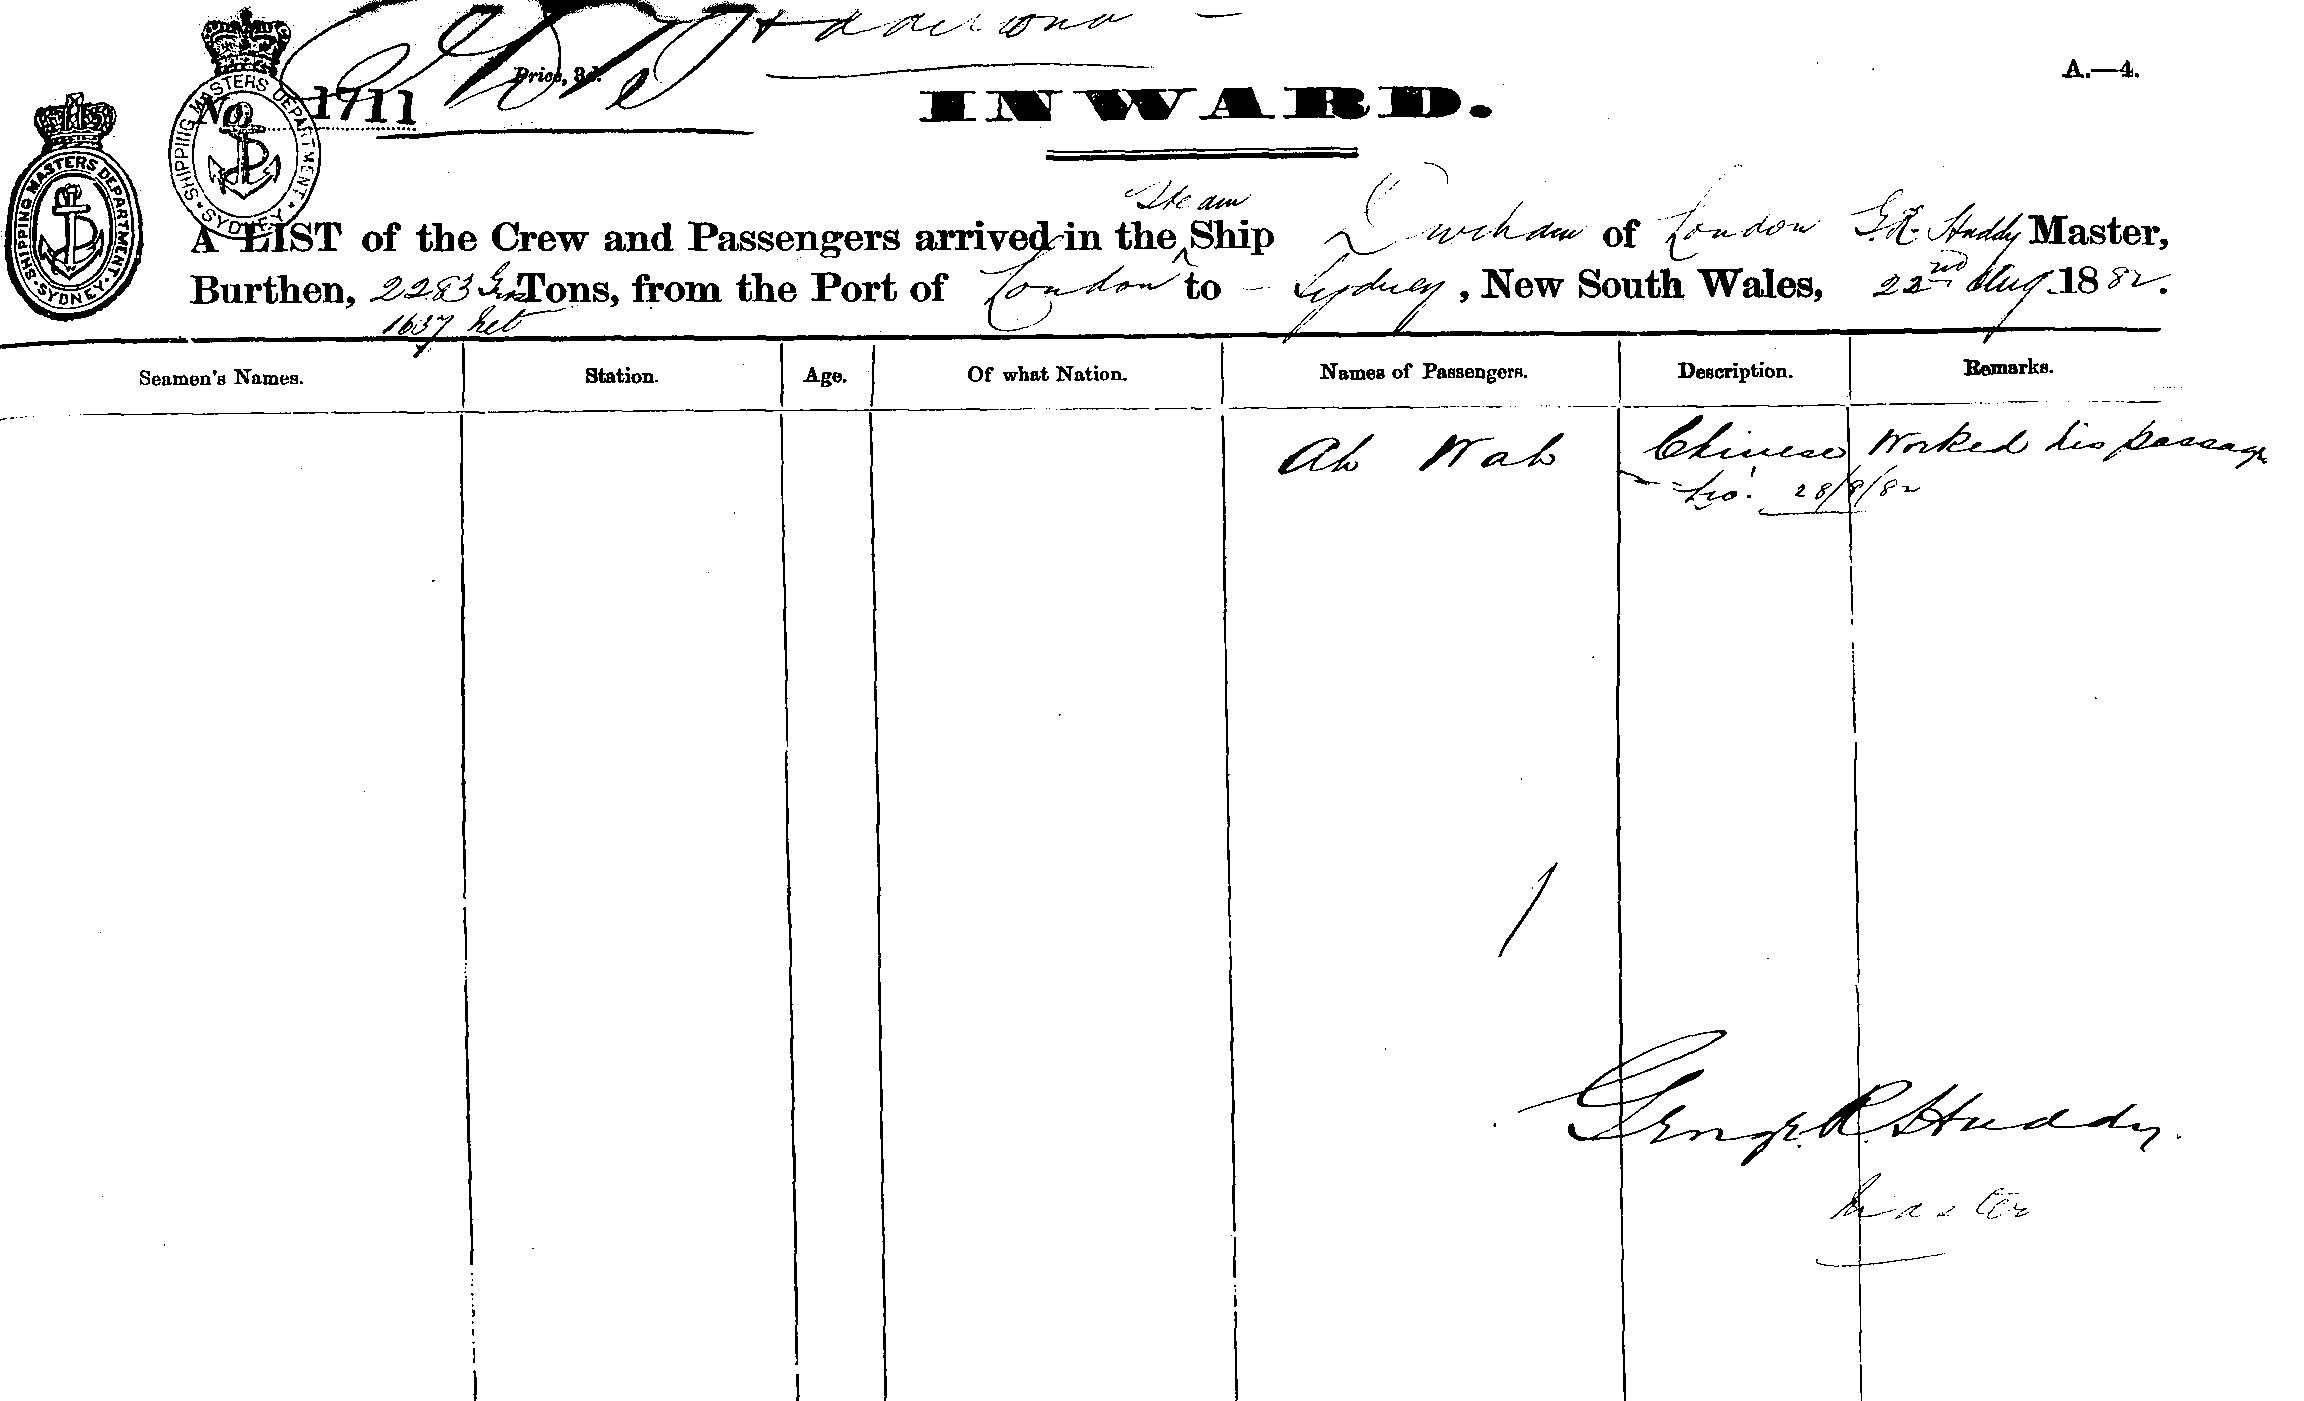 Additional
Price, 3d.
A.—4.
No. 1711
INWARD.
SHIPPING MASTERS DEPARTMENT · SYDNEY ·
SHIPPING MASTERS DEPARTMENT · SYDNEY ·
Steam
A LIST of the Crew and Passengers arrived in the ^ Ship Durham of London G.R. Huddy Master,
Burthen, 2283 Gro Tons, from the Port of London to - Sydney, New South Wales, 22nd Aug 1882.
1637 net
Seamen's Names. Station. Age. Of what Nation. Names of Passengers. Description. Remarks.
Ah Wah Chinese Worked his passage
28/8/82
George R. Huddy.
Master